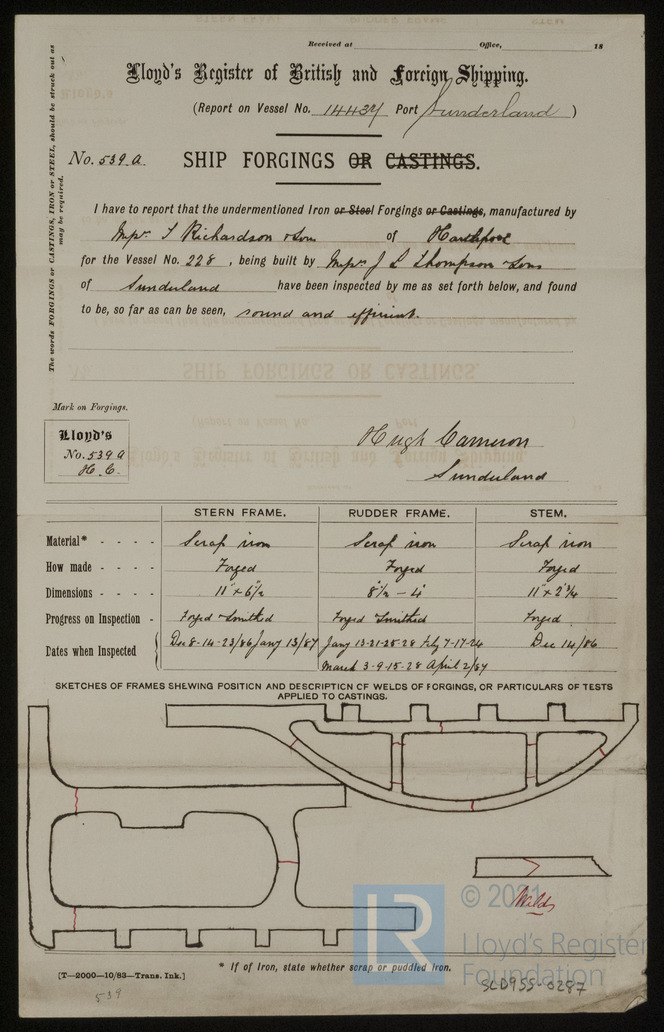 Received at Office, 18
Lloyd's Register of British and Foreign Shipping.
(Report on Vessel No. 14437 Port Sunderland )
No. 539.A. SHIP FORGINGS OR CASTINGS.
The words FORGINGS or CASTINGS, IRON or STEEL, should be struck out as
may be required.
I have to report that the undermentioned Iron or Steel Forgings or Castings, manufactured by
Messrs T Richardson & Sons of Hartlepool
for the Vessel No. 228 , being built by Messrs J L Thompson & Sons
of Sunderland have been inspected by me as set forth below, and found
to be, so far as can be seen, sound and efficient.
Mark on Forgings.
Lloyd's
No. 539 A
H. C.
Hugh Cameron
Sunderland
STERN FRAME. RUDDER FRAME. STEM.
Material* - - - - Scrap iron Scrap iron Scrap iron
How made - - - - Forged Forged Forged
Dimensions - - - - 11" x 6 1/2 8 1/2 - 4" 11" x 2 3/4
Progress on Inspection - Forged Smithed Forged Smithed Forged
Dates when Inspected Dec 8-14-23/86 Jany 13/87 Jany 13-21-25-28 Feby 7-17-24 Dec 14/86
March 3-9-15-28 April 2/87
SKETCHES OF FRAMES SHEWING POSITION AND DESCRIPTION OF WELDS OF FORGINGS, OR PARTICULARS OF TESTS
APPLIED TO CASTINGS.
Welds
© 2021
LR
Lloyd's Register
Foundation
* If of Iron, state whether scrap or puddled Iron.
[T—2000—10/83—Trans. Ink.]
SLD955-0287
539